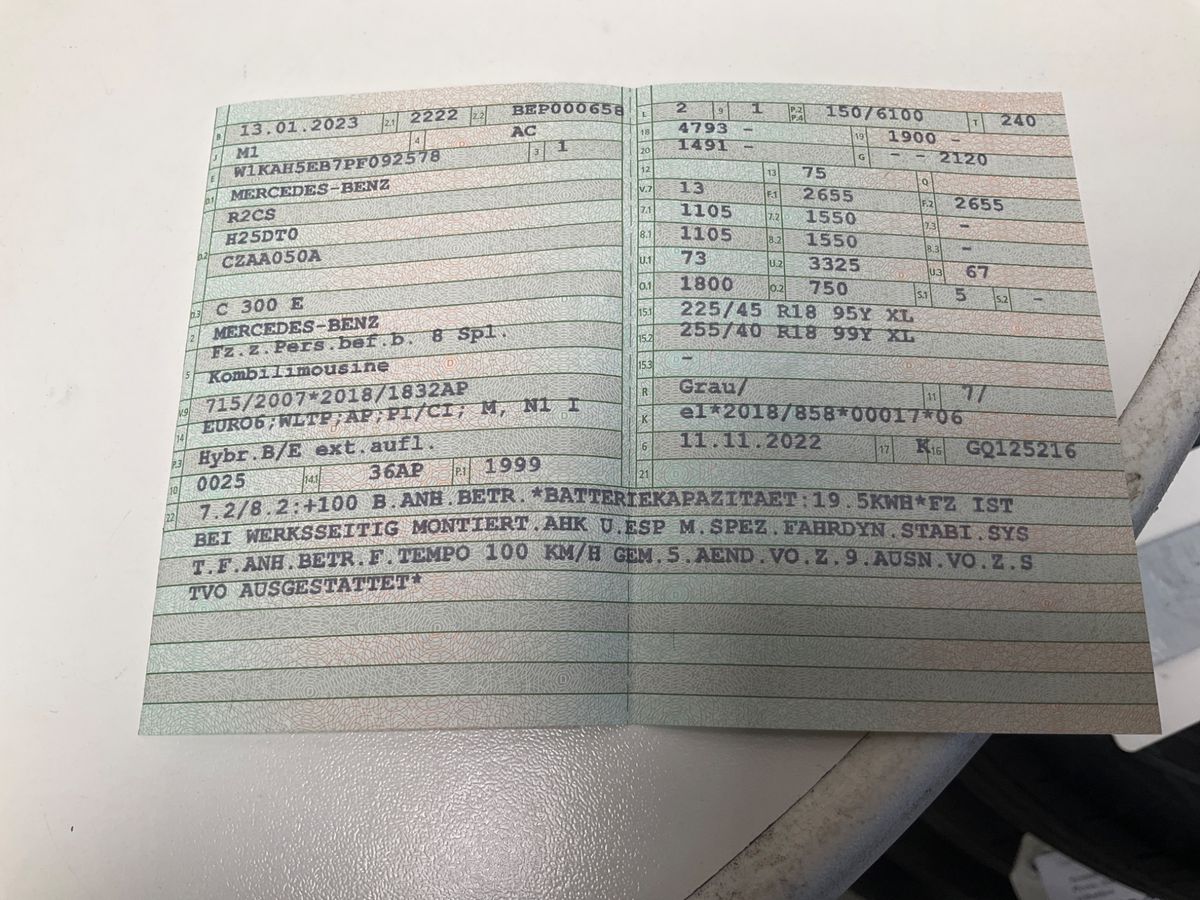 B 13.01.2023 2.1 2222 2.2 BEP000658
J M1 4 AC
E W1KAH5EB7PF092578 3 1
D.1 MERCEDES-BENZ
R2CS
D.2 H25DT0
CZAA050A
D.3 C 300 E
2 MERCEDES-BENZ
5 Fz.z.Pers.bef.b. 8 Spl.
Kombilimousine
V.9 715/2007*2018/1832AP
14 EURO6;WLTP;AP;PI/CI; M, N1 I
P.3 Hybr.B/E ext.aufl.
10 0025 14.1 36AP P.1 1999
L 2 9 1 P.2 P.4 150/6100 T 240
18 4793 - 19 1900 -
20 1491 - G - - 2120
12 13 75 Q
V.7 13 F.1 2655 F.2 2655
7.1 1105 7.2 1550 7.3 -
8.1 1105 8.2 1550 8.3 -
U.1 73 U.2 3325 U.3 67
O.1 1800 O.2 750 S.1 5 S.2 -
15.1 225/45 R18 95Y XL
15.2 255/40 R18 99Y XL
15.3 -
R Grau/ 11 7/
K e1*2018/858*00017*06
6 11.11.2022 17 K 16 GQ125216
21
22 7.2/8.2:+100 B.ANH.BETR.*BATTERIEKAPAZITAET:19.5KWH*FZ IST
BEI WERKSSEITIG MONTIERT.AHK U.ESP M.SPEZ.FAHRDYN.STABI.SYS
T.F.ANH.BETR.F.TEMPO 100 KM/H GEM.5.AEND.VO.Z.9.AUSN.VO.Z.S
TVO AUSGESTATTET*